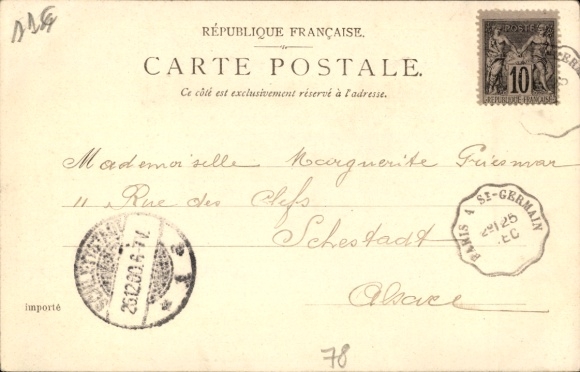 RÉPUBLIQUE FRANÇAISE.
CARTE POSTALE.
Ce côté est exclusivement réservé à l'adresse.
10
REPUBLIQUE FRANÇAISE
Mademoiselle Marguerite Friesmar
11 Rue des Clefs
Schestadt
Alsace
PARIS A St-GERMAIN
26.12.00.6-7V.
importé
78